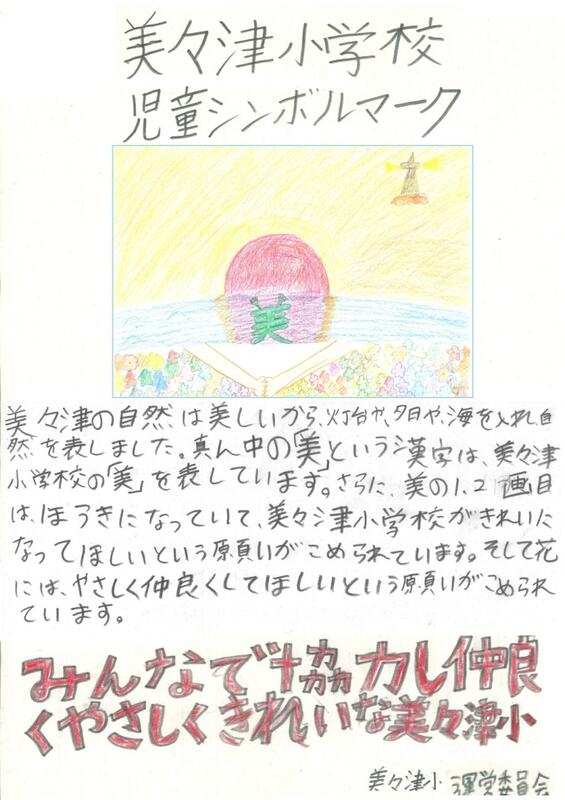 美々津小学校
児童シンボルマーク
美
美々津の自然は美しいから、灯台や、夕日や、海を入れ自
然を表しました。真ん中の「美」という漢字は、美々津
小学校の「美」を表しています。さらに、美の1、2画目
は、ほうきになっていて、美々津小学校がきれいに
なってほしいという願いがこめられています。そして花
には、やさしく仲良くしてほしいという願いがこめられ
ています。
みんなで協力し仲良
くやさしくきれいな美々津小
美々津小 運営委員会